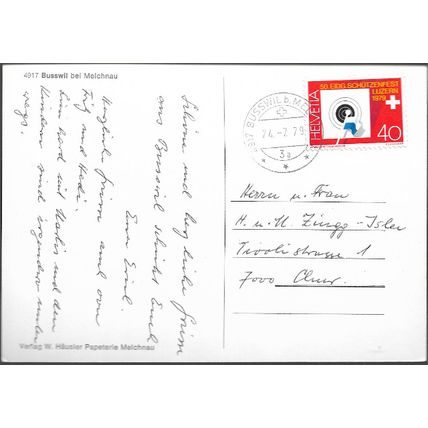 4917 Busswil bei Melchnau
Schöne und herzliche Grüsse
aus Busswil schickt Euch
Eure
Herzliche Grüsse auch von
Fritz und Hedi.
und Martin und den
Kindern sind irgendwo unter-
wegs.
Verlag W. Häusler Papeterie Melchnau
4917 BUSSWIL b. M
24.-7.79
3a
50. EIDG. SCHÜTZENFEST
LUZERN
1979
HELVETIA
40
Herrn u. Frau
H. u. U. Zingg-Isler
Tivolistrasse 1
7000 Chur.